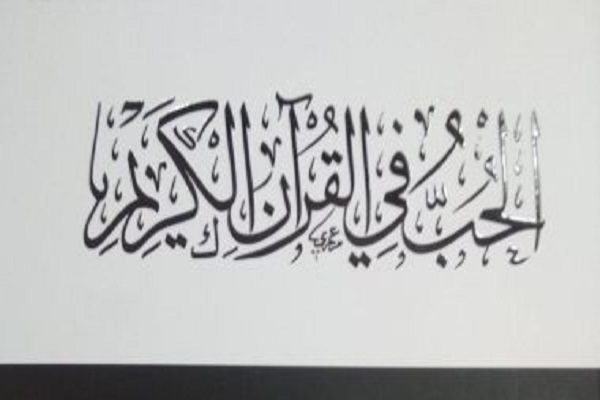 الحُبُّ في القُرآنِ الكَريم